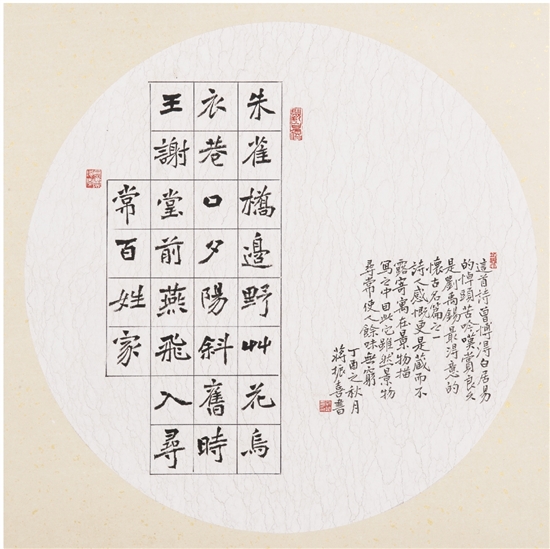 朱雀橋邊野艸花烏
衣巷口夕陽斜舊時
王謝堂前燕飛入尋
常百姓家
這首詩曾博得白居易
的掉頭苦吟嘆賞良久
是劉禹錫最得意的
懷古名篇之一
詩人感慨更是藏而不
露寄寓在景物描
寫之中因此它雖然景物
尋常使人餘味無窮
丁酉之秋月
蔣振喜書